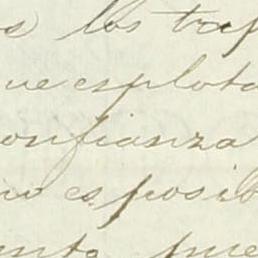 s los trap
ue esplota
onfianza
no es posib
ento pue